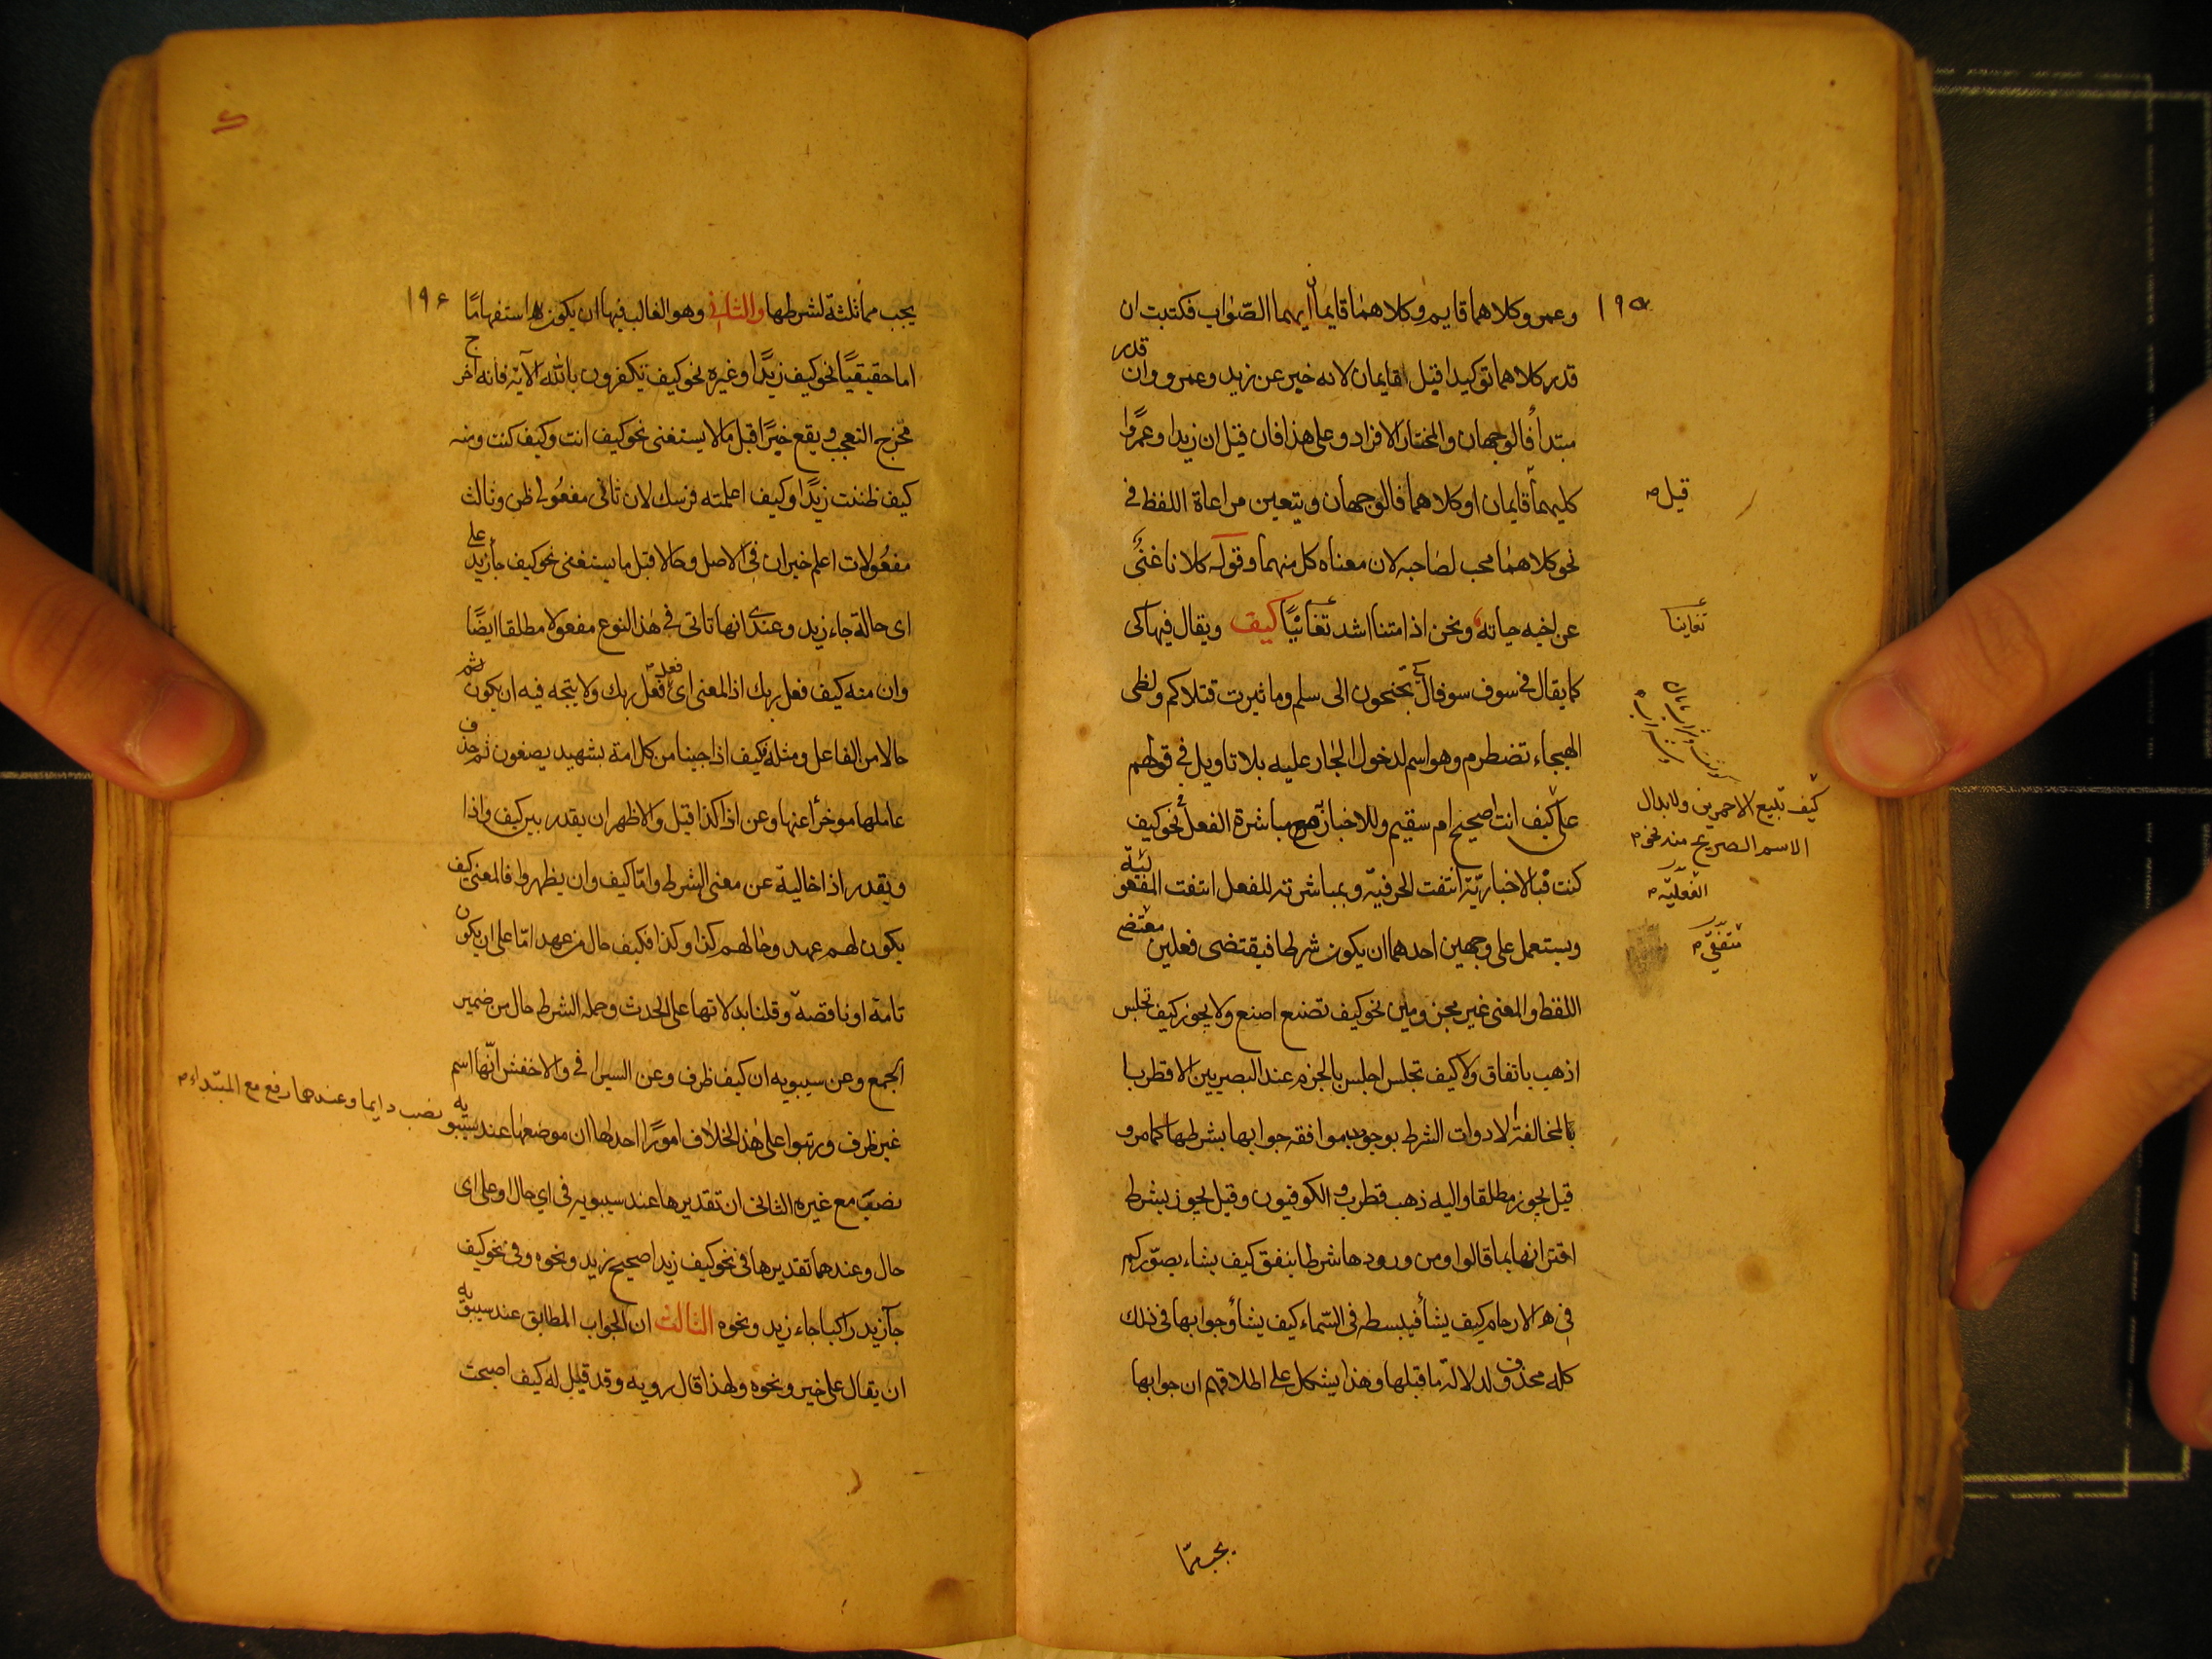 ١٩٥
وعمرو وكلاهما قايم وكلاهما قايمان ايهما الصّواب فكتبت ان
قدر كلاهما توكيدا قيل قايمان لانه خبر عن زيد وعمرو وان قدر
مبتدأ فالوجهان والمختار الافراد وعلى هذا فان قيل ان زيدا وعمرًوا
كليهما قايمان او كلاهما فالوجهان ويتعين مراعاة اللفظ في
قيل
نحو كلاهما محب لصاحبه لان معناه كل منهما وقوله كلانا غنىٌّ
عن اخيه حياته ونحن اذا متنا اشد تغانيًا كيف ويقال فيها كى
تغاينا
كما يقال في سوف سو قال كى تجنحون الى سلم وما ثيرت قتلاكم ولظى
الهيجاء تضطرم وهو اسم لدخول الجار عليه بلا تاويل في قولهم
على كيف تبيع الاحمرين ولابدال
الاسم الصريح منه نحو
كيف انت اصحيح ام سقيم وللاخبار به مع مباشرة الفعل في نحو كيف
كنت فبالاخباريّة انتفت الحرفيّة وبمباشرته للفعل انتفت المفعولية
الفعليّة
ويستعمل على وجهين احدهما ان يكون شرطا فيقتضى فعلين
متفقى
اللفظ والمعنى غير مجزومين نحو كيف تصنع اصنع ولا يجوز كيف تجلس
اذهب باتفاق ولا كيف تجلس اجلس بالجزم عند البصريين الا قطربا
بالمخالفة لادوات الشرط بوجوب موافقه جوابها بشرطها كما مر و
قيل يجوز مطلقا واليه ذهب قطرب والكوفيون وقيل يجوز بشرط
اقترانها بما قالوا ومن ورودها شرطا ينفق كيف يشاء يصوّركم
فى الارحام كيف يشأ فيبسطه فى السّماء كيف يشأ وجوابها فى ذلك
كله محذوف لدلالة ما قبلها وهذا يشكل على اطلاقهم ان جوابها
يجب ممّا
١٩۶
يجب مماثلثة لشرطها والثانى وهو الغالب فيها ان يكون استفهامًا
اما حقيقيًا نحو كيف زيدًا وغيره نحو كيف تكفرون بالله الآية فانه اخرج
مخرج التعجب ويقع خبرًا قبل ما لا يستغنى نحو كيف انت وكيف كنت ومنه
كيف ظننت زيدًا وكيف اعلمته فرسك لان ثانى مفعولى ظن وثالث
مفعولات اعلم خبران فى الاصل وحالا قبل ما يستغنى نحو كيف جأ زيد على
اى حالة جاء زيد وعندى انها تاتى فى هذا النوع مفعولا مطلقا ايضًا
وان منه كيف فعل ربك اذ المعنى اى فعل فعل ربك ولا يتجه فيه ان يكون
حالا من الفاعل ومثله فكيف اذا جينا من كل امة بشهيد يصنعون ثم حذف
عاملها موخرًا عنها وعن اذا كذا قيل والاظهر ان يقدر بين كيف واذا
ويقدر اذا خالية عن معنى الشرط وامّا كيف وان يظهروا فالمعنى كيف
يكون لهم عهد وحالهم كذا وكذا فكيف حال من عهد امّا على ان يكون
تامة او ناقصة وقلنا بدلاتها على الحدث وجملة الشرط حال من ضمير
الجمع وعن سيبويه ان كيف ظرف وعن السيرافى والاخفش انّها اسم
غير ظرف ورتبوا على هذا الخلاف امورًا احدها ان موضعها عند سيبويه
نصب دايما وعندهما رفع مع المبتداء
نصب مع غيره الثانى ان تقديرها عند سيبويه فى اي حال او على اى
حال وعندهما تقديرها فى نحو كيف زيد اصحيح زيد ونحوه وفى نحو كيف
جآ زيد راكبا جاء زيد ونحوه الثالث ان الجواب المطابق عند سيبويه
ان يقال على خير ونحوه ولهذا قال رويه وقد قيل له كيف اصبحت